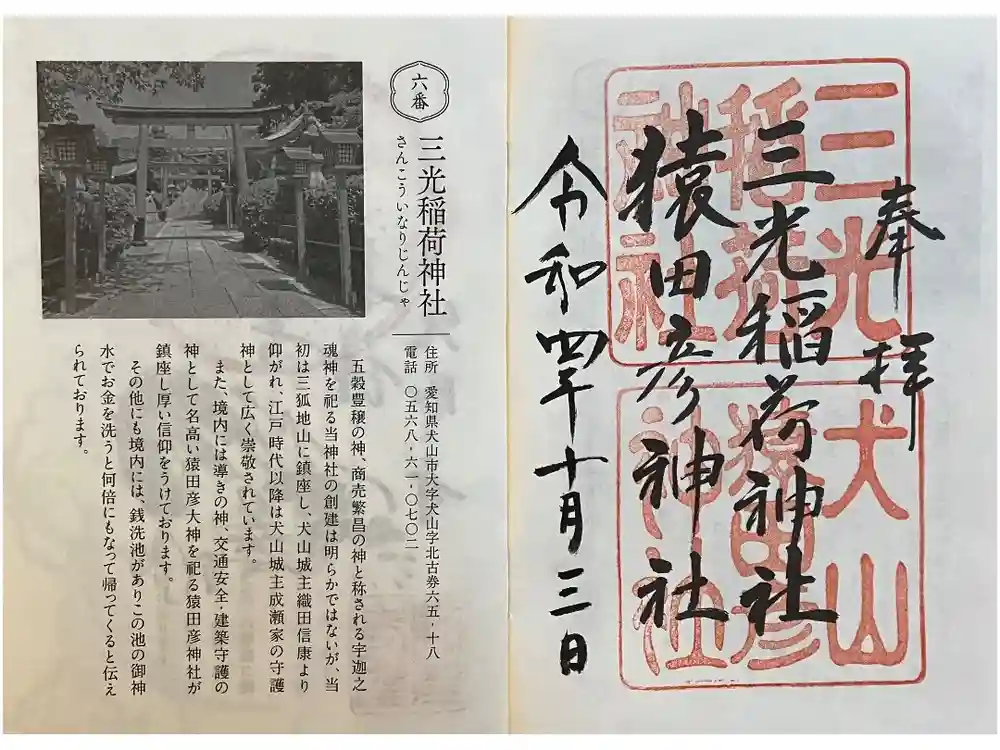 奉拝
三光稲荷神社
猿田彦神社
令和四年十月三日
三光
稲荷
神社
犬山
猿田彦
神社
六番
三光稲荷神社
さんこういなりじんじゃ
住所 愛知県犬山市大字犬山字北古券六五-十八
電話 〇五六八-六一-〇七〇二
五穀豊穣の神、商売繁昌の神と称される宇迦之
魂神を祀る当神社の創建は明らかではないが、当
初は三狐地山に鎮座し、犬山城主織田信康より
仰がれ、江戸時代以降は犬山城主成瀬家の守護
神として広く崇敬されています。
また、境内には導きの神、交通安全・建築守護の
神として名高い猿田彦大神を祀る猿田彦神社が
鎮座し厚い信仰をうけております。
その他にも境内には、銭洗池がありこの池の御神
水でお金を洗うと何倍にもなって帰ってくると伝え
られております。